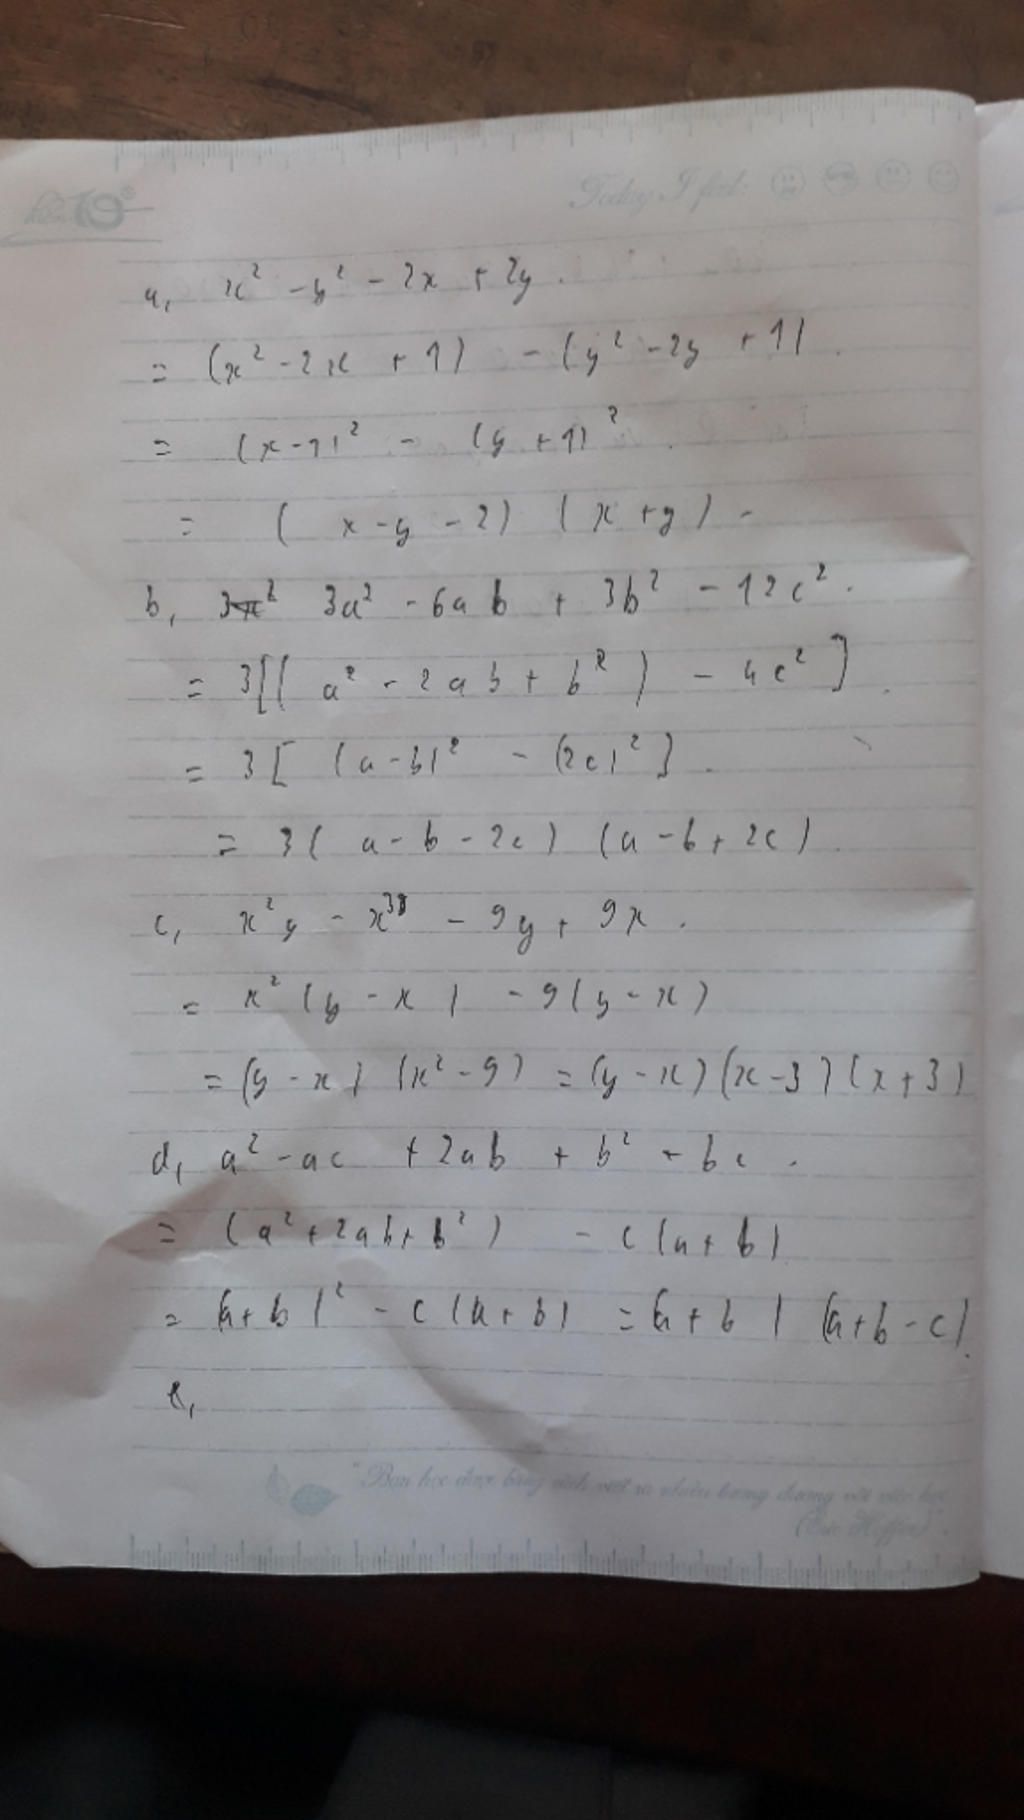 Today I feel:
a, x² - y² - 2x + 2y.
= (x² - 2x + 1) - (y² - 2y + 1)
= (x - 1)² - (y + 1)²
= (x - y - 2) (x + y)
b, 3x² 3a² - 6ab + 3b² - 12c².
= 3[(a² - 2ab + b²) - 4c²]
= 3[(a - b)² - (2c)²]
= 3(a - b - 2c) (a - b + 2c)
c, x²y - x³ - 9y + 9x.
= x²(y - x) - 9(y - x)
= (y - x) (x² - 9) = (y - x)(x - 3)(x + 3)
d, a² - ac + 2ab + b² - bc.
= (a² + 2ab + b²) - c(a + b)
= (a + b)² - c(a + b) = (a + b) (a + b - c).
e,
"Bạn học được bằng cách viết ra nhiều tương đương với việc học
(Eric Hoffer)".